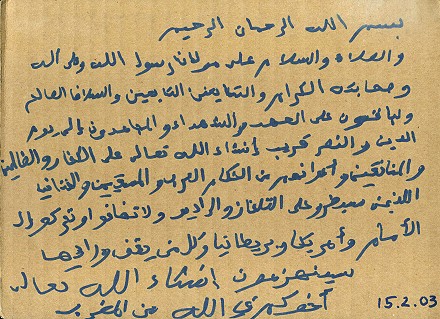 بسم الله الرحمان الرحيم
والصلاة والسلام على مولانا رسول الله وعلى آله
وصحابته الكرام والتابعين التابعين والسلاف الصالح
على العهد والشهداء والمجاهدون إلى يوم
الدين والنصر قريب إنشاء الله تعالى على الكفار والظالمين
والمنافقين من الحكام العرب
الذين على التلفاز والراديو ولا تخافو
الأمام وأمريكا وبريطانيا وكل من يقف ورائهما
سينهزمون إنشاء الله تعالى
أخوكم في الله من المغرب
15.2.03